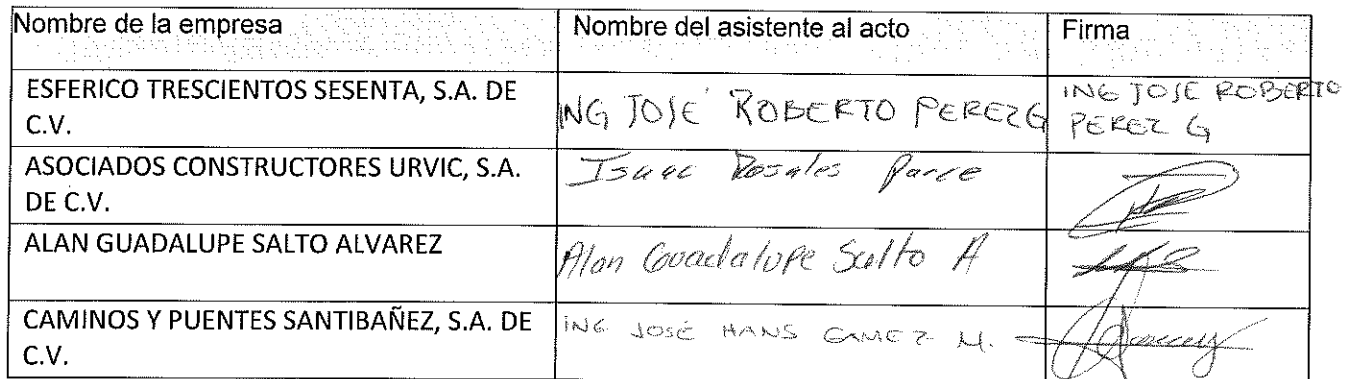 Nombre de la empresa Nombre del asistente al acto Firma
ESFERICO TRESCIENTOS SESENTA, S.A. DE
C.V.
ING JOSÉ ROBERTO PEREZ G
ING JOSE ROBERTO
PEREZ G
ASOCIADOS CONSTRUCTORES URVIC, S.A.
DE C.V.
Isaac Rosales Parce
ALAN GUADALUPE SALTO ALVAREZ
Alan Guadalupe Salto A
CAMINOS Y PUENTES SANTIBAÑEZ, S.A. DE
C.V.
ING JOSÉ HANS GAMEZ M.